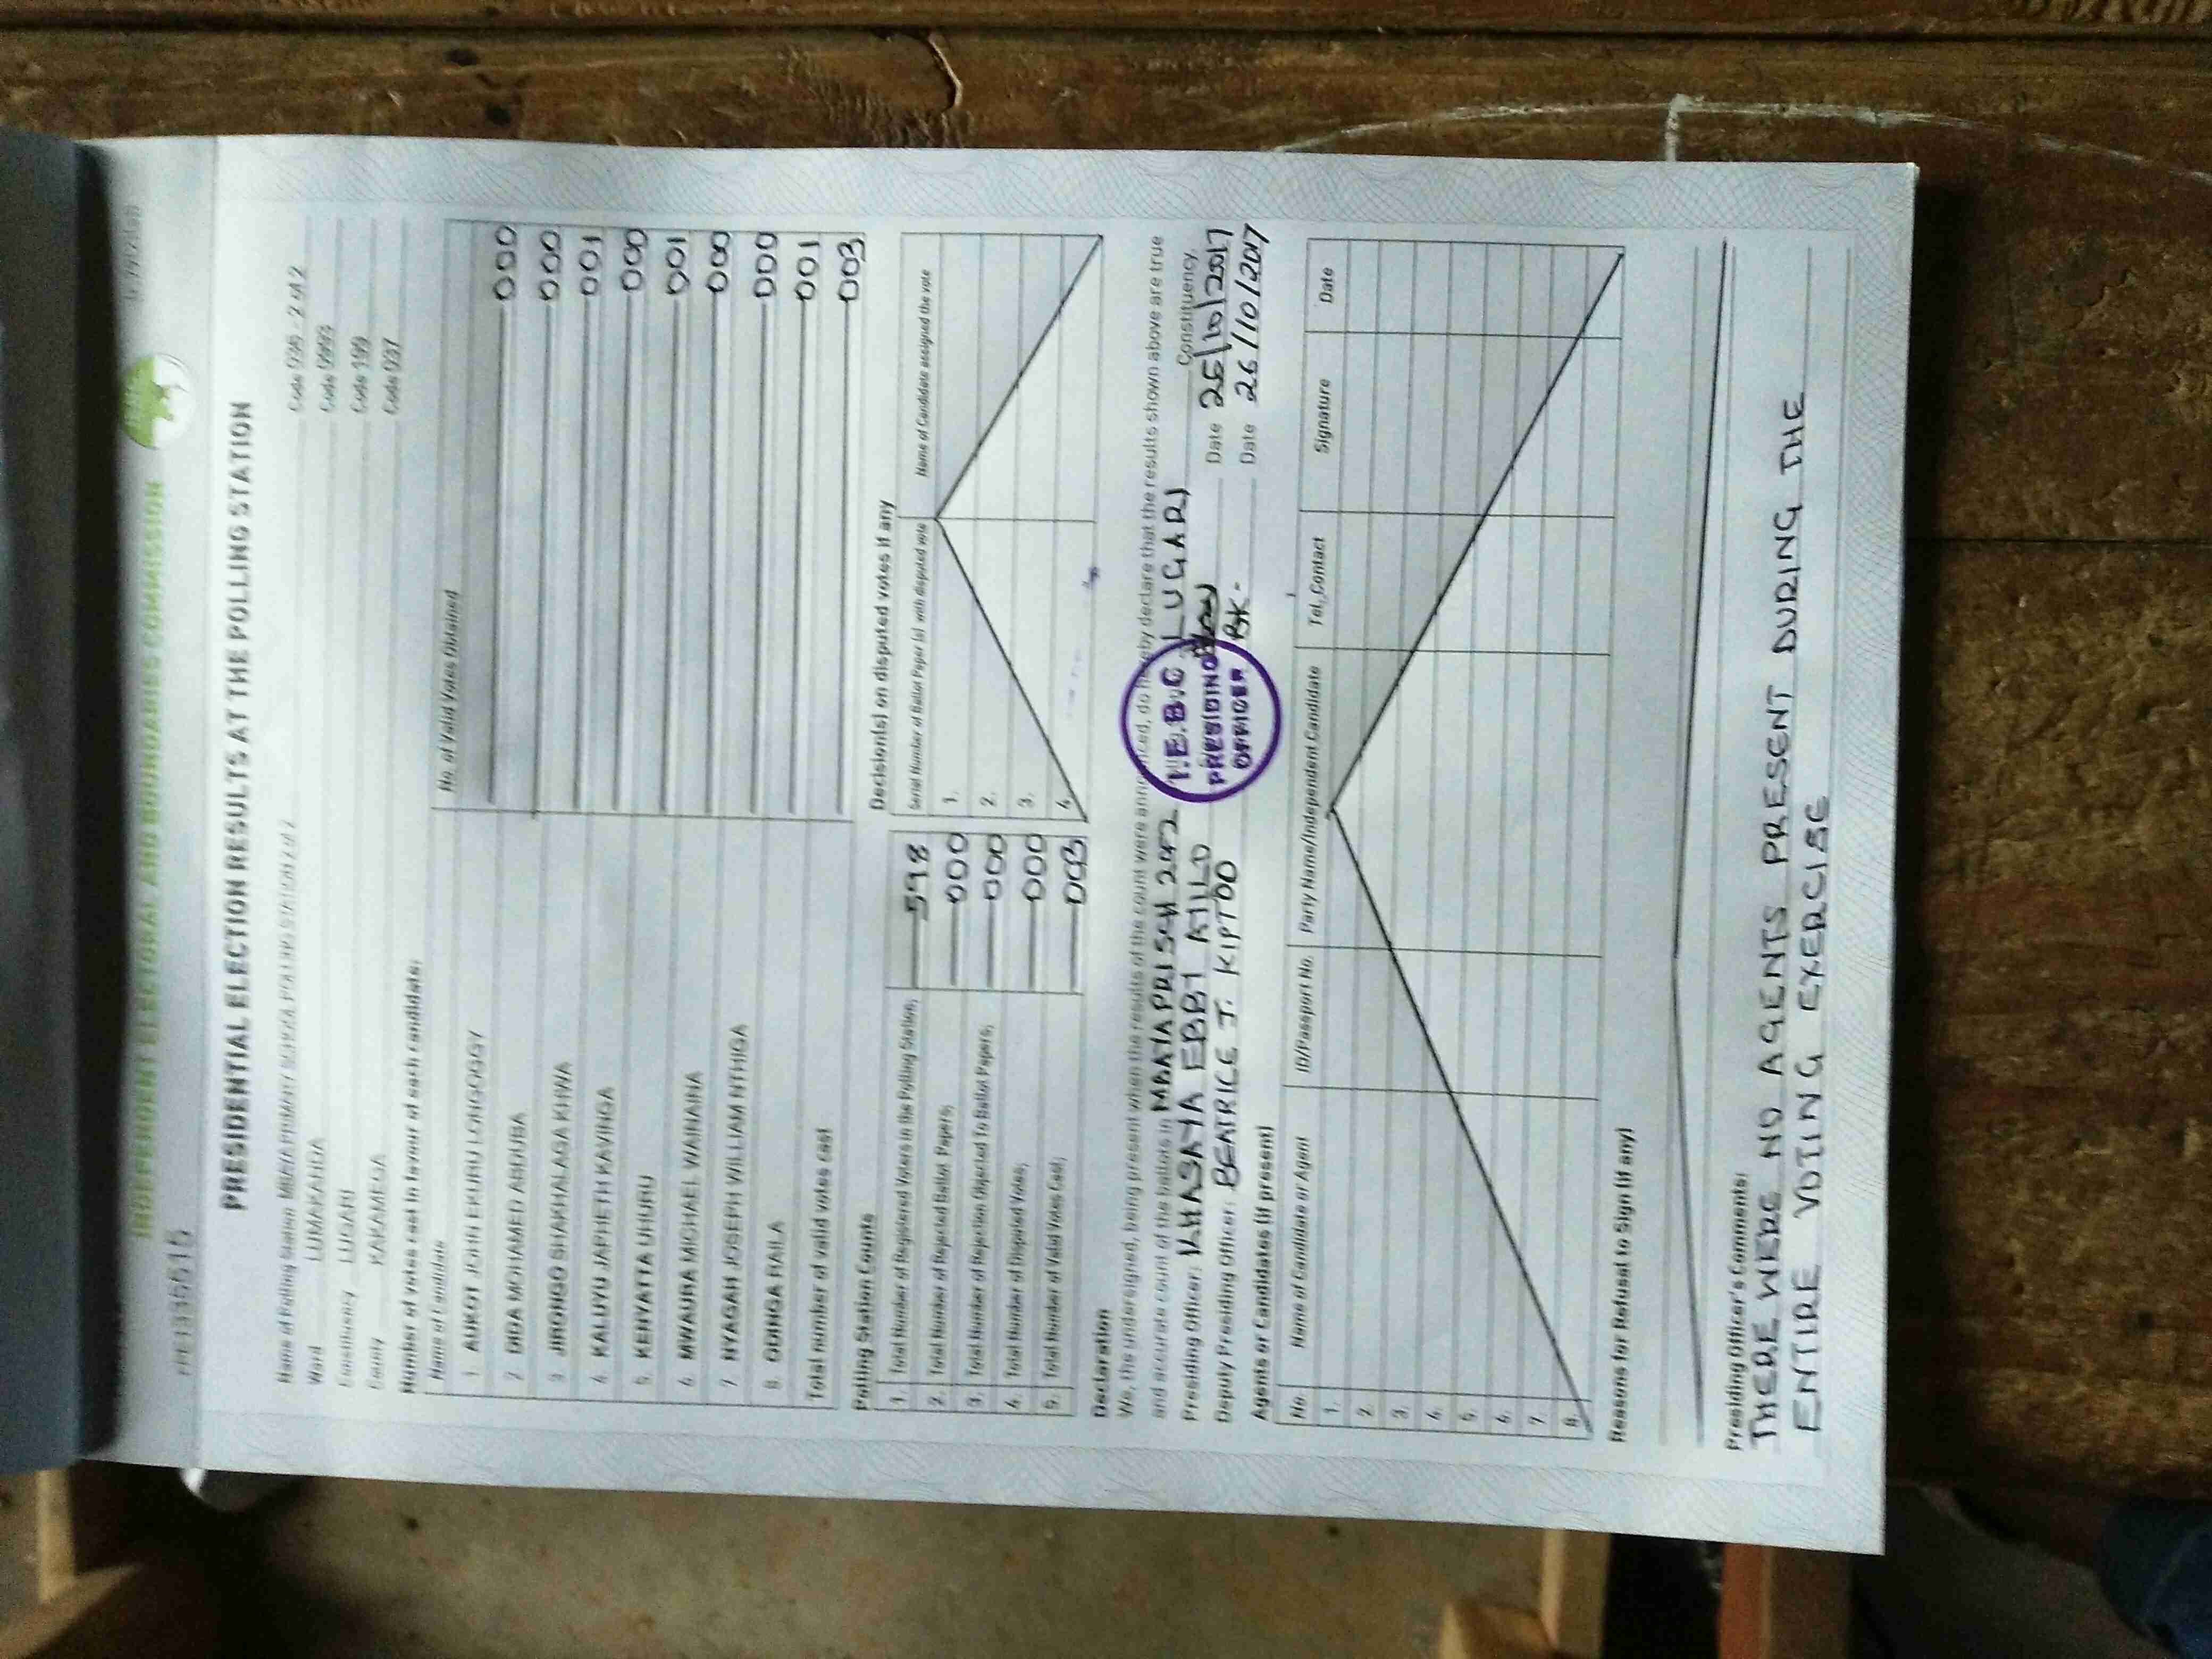 INDEPENDENT ELECTORAL AND BOUNDARIES COMMISSION
PRESIDENTIAL ELECTION RESULTS AT THE POLLING STATION
Name of Polling Station MBAYA PRIMARY SCHOOL POLLING STATION 2 of 2 Code 036 - 2 of 2
Ward LUMAKANDA Code
Constituency LUGARI Code 199
County KAKAMEGA Code 037
Number of votes cast in favour of each candidate:
Name of Candidate No. of Valid Votes Obtained
1. AUKOT JOHN EKURU LONGOGGY 000
2. DIDA MOHAMED ABDUBA 000
3. JIRONGO SHAKHALAGA KHWA 001
4. KALUYU JAPHETH KAVINGA 000
5. KENYATTA UHURU 001
6. MWAURA MICHAEL WAINAINA 000
7. NYAGAH JOSEPH WILLIAM NTHIGA 000
8. ODINGA RAILA 001
Total number of valid votes cast 003
Polling Station Counts
1. Total Number of Registered Voters in the Polling Station; 598
2. Total Number of Rejected Ballot Papers; 000
3. Total Number of Rejection Objected To Ballot Papers; 000
4. Total Number of Disputed Votes; 000
5. Total Number of Valid Votes Cast; 003
Decision(s) on disputed votes if any
Serial Number of Ballot Paper (s) with disputed vote Name of Candidate assigned the vote
1.
2.
3.
4.
Declaration
We, the undersigned, being present when the results of the count were announced, do hereby declare that the results shown above are true
and accurate count of the ballots in MBAYA PRI SCH 2 OF 2 LUGARI Constituency.
Presiding Officer: KHASAYA EBBY Date 26/10/2017
Deputy Presiding Officer: BEATRICE J. KIPTOO BK- Date 26/10/2017
I.E.B.C
PRESIDING
OFFICER
Agents or Candidates (if present)
No Name of Candidate or Agent ID/Passport No. Party Name/Independent Candidate Tel. Contact Signature Date
1.
2.
3.
4.
5.
6.
7.
8.
Reasons for Refusal to Sign (if any)
Presiding Officer's Comments:
THERE WERE NO AGENTS PRESENT DURING THE
ENTIRE VOTING EXERCISE